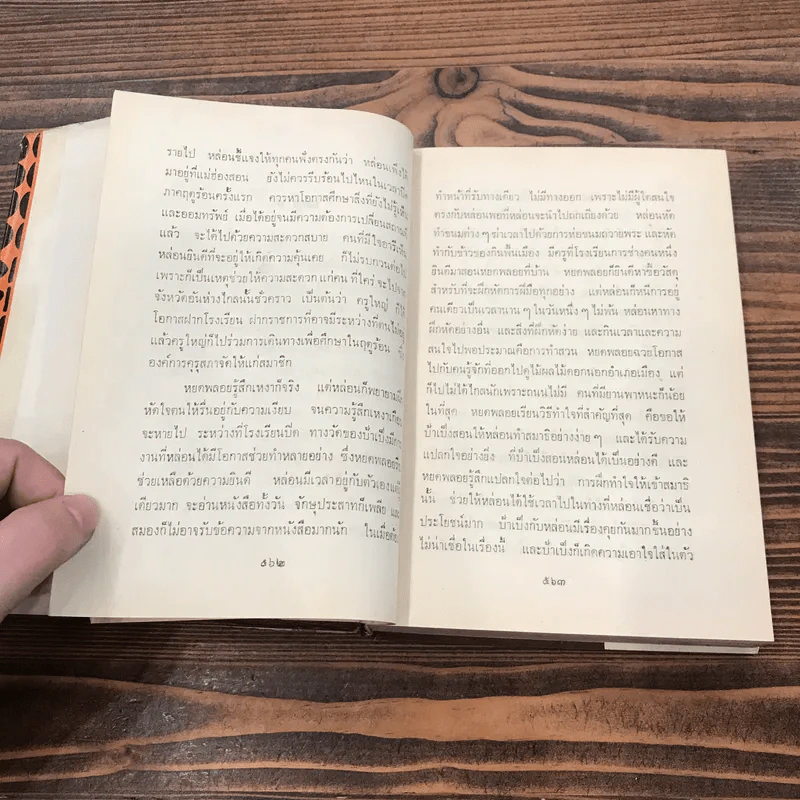 รายไป หล่อนชี้แจงให้ทุกคนฟังตรงกันว่า หล่อนเพิ่งได้
มาอยู่ที่แม่ฮ่องสอน ยังไม่ควรรีบร้อนไปไหนในเวลาที่ปิด
ภาคฤดูร้อนครั้งแรก ควรหาโอกาสศึกษาสิ่งที่ยังไม่รู้
และออมทรัพย์ เมื่อได้อยู่จนมีความต้องการเปลี่ยนสถานที่
แล้ว จะได้ไปด้วยความสะดวกสบาย คนที่มีใจอารี
หล่อนยินดีที่จะอยู่ให้เกิดความคุ้นเคย ก็ไม่รบกวนต่อไป
เพราะก็เป็นเหตุช่วยให้ความสะดวก แก่คน ที่ใคร่ จะไปจาก
จังหวัดอันห่างไกลนั้นชั่วคราว เป็นต้นว่า ครูใหญ่ ที่ได้
โอกาสฝากโรงเรียน ฝากราชการที่อาจมีระหว่างที่คนไม่อยู่
แล้วครูใหญ่ก็ไปร่วมการเดินทางเพื่อศึกษาในฤดูร้อน ซึ่ง
องค์การคุรุสภาจัดให้แก่สมาชิก
หยดพลอยรู้สึกเหงาก็จริง แต่หล่อนก็พยายามฝึก
หัดใจตนให้รื่นอยู่กับความเงียบ จนความรู้สึกเหงาเกือบ
จะหายไป ระหว่างที่โรงเรียนปิด ทางวัดของป้าเป็งมีการ
งานที่หล่อนได้มีโอกาสช่วยทำหลายอย่าง ซึ่งหยดพลอย
ช่วยเหลือด้วยความยินดี หล่อนมีเวลาอยู่กับตัวเองแต่ผู้
เดียวมาก จะอ่านหนังสือทั้งวัน จักษุประสาทก็เพลีย และ
สมองก็ไม่อาจรับข้อความจากหนังสือมากนัก ในเมื่อต้อง
๕๖๒
ทำหน้าที่รับทางเดียว ไม่มีทางออก เพราะไม่มีผู้ใดสนใจ
ตรงกับหล่อนพอที่หล่อนจะนำไปถกเถียงด้วย หล่อนหัด
ทำขนมต่าง ๆ ฆ่าเวลาไปด้วยการห่อขนมถวายพระ และหัด
ทำกับข้าวของกินพื้นเมือง มีครูที่โรงเรียนการช่างคนหนึ่ง
ยินดีมาสอนหยดพลอยที่บ้าน หยดพลอยก็ยินดีหาซื้อวัสดุ
สำหรับที่จะฝึกหัดการฝีมือทุกอย่าง แต่หล่อนก็หนีการอยู่
คนเดียวเป็นเวลานาน ๆ ในวันหนึ่ง ๆ ไม่พ้น หล่อนหาทาง
ฝึกหัดอย่างอื่น และสิ่งที่ฝึกหัดง่าย และกินเวลาและความ
สนใจไปพอประมาณคือการทำสวน หยดพลอยฉวยโอกาส
ไปกับคนรู้จักที่ออกไปดูไม้ผลไม้ดอกนอกอำเภอเมือง แต่
ก็ไปไม่ได้ไกลนักเพราะถนนไม่มี คนที่มียานพาหนะก็น้อย
ในที่สุด หยดพลอยเรียนวิธีทำใจที่สำคัญที่สุด คือขอให้
ป้าเป็งสอนให้หล่อนทำสมาธิอย่างง่าย ๆ และได้รับความ
แปลกใจอย่างยิ่ง ที่ป้าเป็งสอนหล่อนได้เป็นอย่างดี และ
หยดพลอยรู้สึกแปลกใจต่อไปว่า การฝึกทำใจให้เข้าสมาธิ
นั้น ช่วยให้หล่อนได้ใช้เวลาไปในทางที่หล่อนเชื่อว่าเป็น
ประโยชน์มาก ป้าเป็งกับหล่อนมีเรื่องคุยกันมากขึ้นอย่าง
ไม่น่าเชื่อในเรื่องนี้ และป้าเป็งก็เกิดความเอาใจใส่ในตัว
๕๖๓